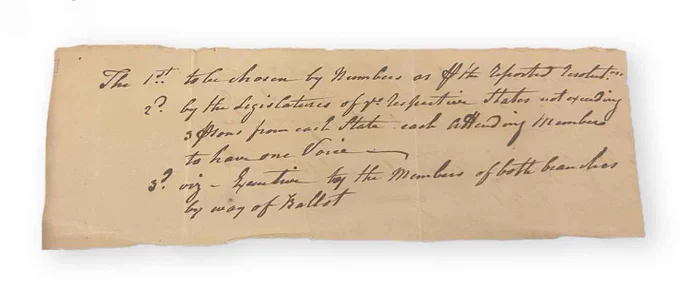 The 1st. to be chosen by Numbers as ⅌ the reported resolutns.
2d. by the Legislatures of ye respective States not exceeding
3 ⅌sons from each State each attending Member
to have one Voice —
3d. viz - Executive by the Members of both branches
by way of Ballot